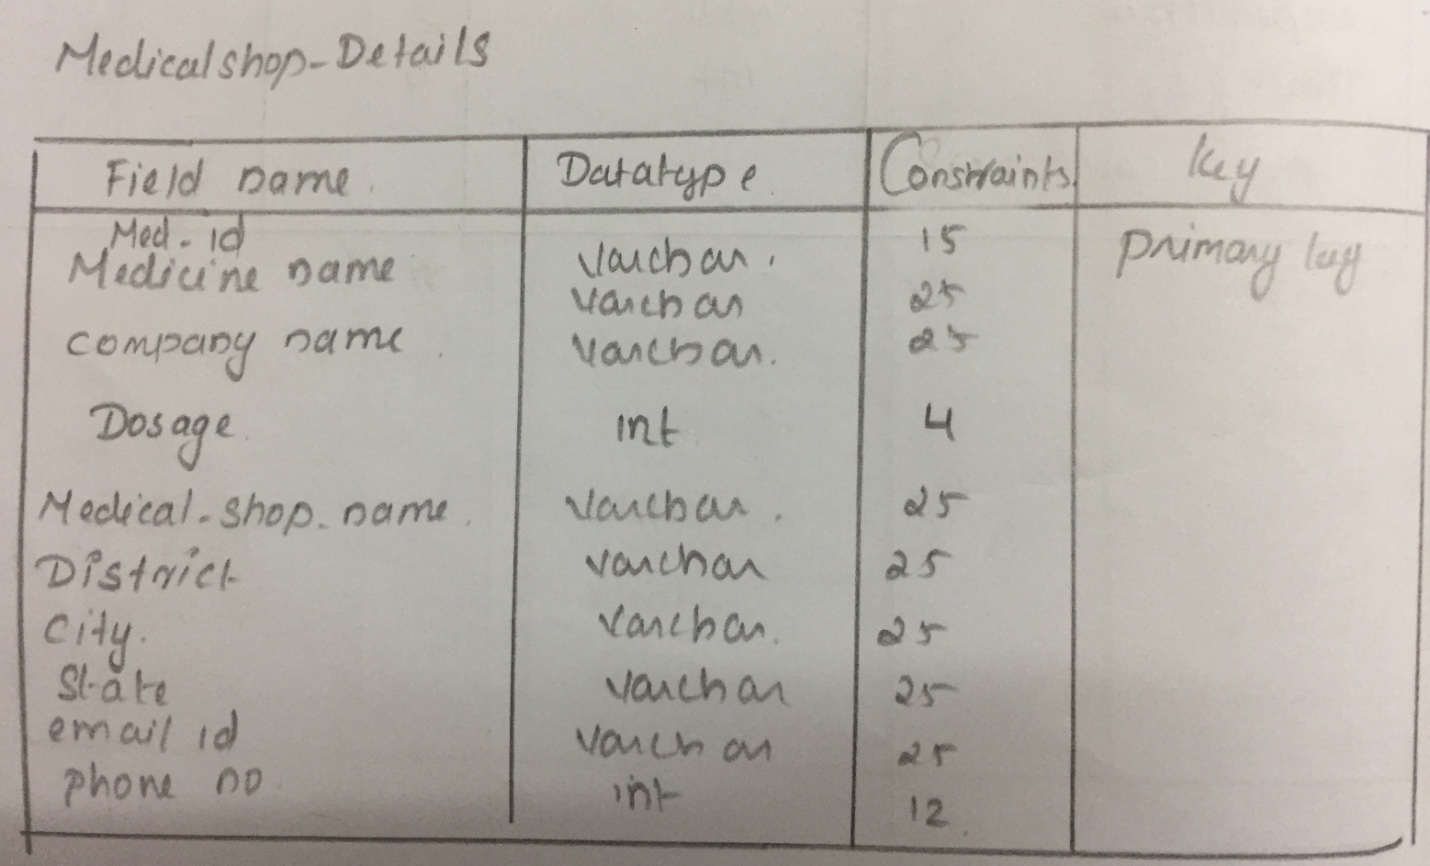 Medicalshop-Details
Field name Datatype Constraints Key
Med-id varchar 15 Primary key
Medicine name varchar 25
company name varchar 25
Dosage int 4
Medical-shop-name varchar 25
District varchar 25
city varchar 25
State varchar 25
email id varchar 25
phone no int 12